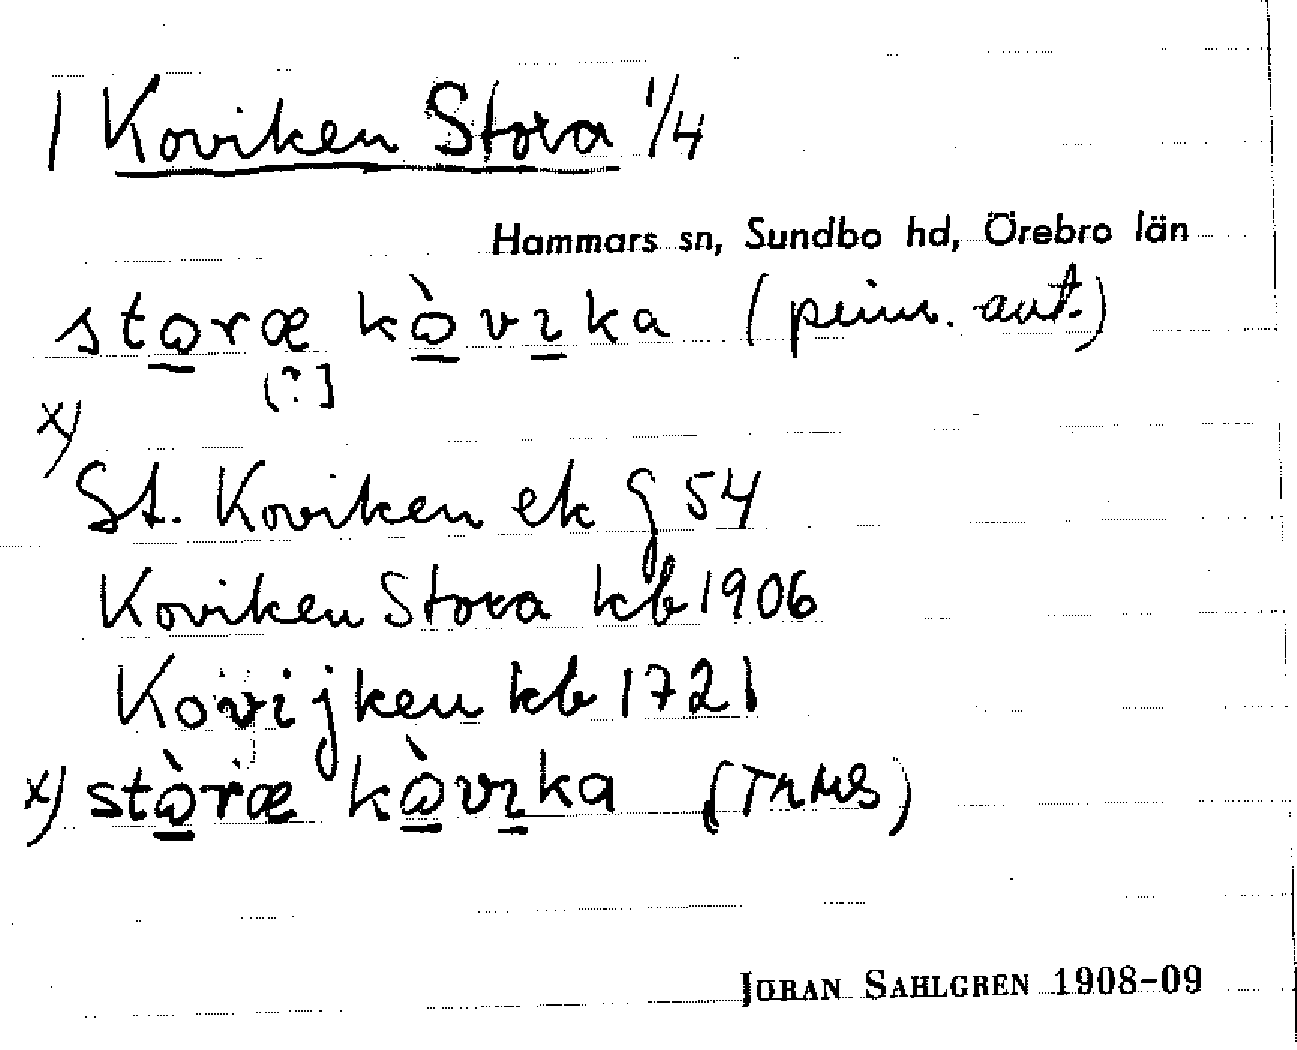 1 Koviken Stora 1/4
Hammars sn, Sundbo hd, Örebro län
storæ kòvıka (prim. ant.)
[?]
x)
St. Koviken ek g 54
Koviken Stora kb 1906
Kovijken kb 1721
x) stòræ kòvıka (TrMS)
JÖRAN SAHLGREN 1908-09